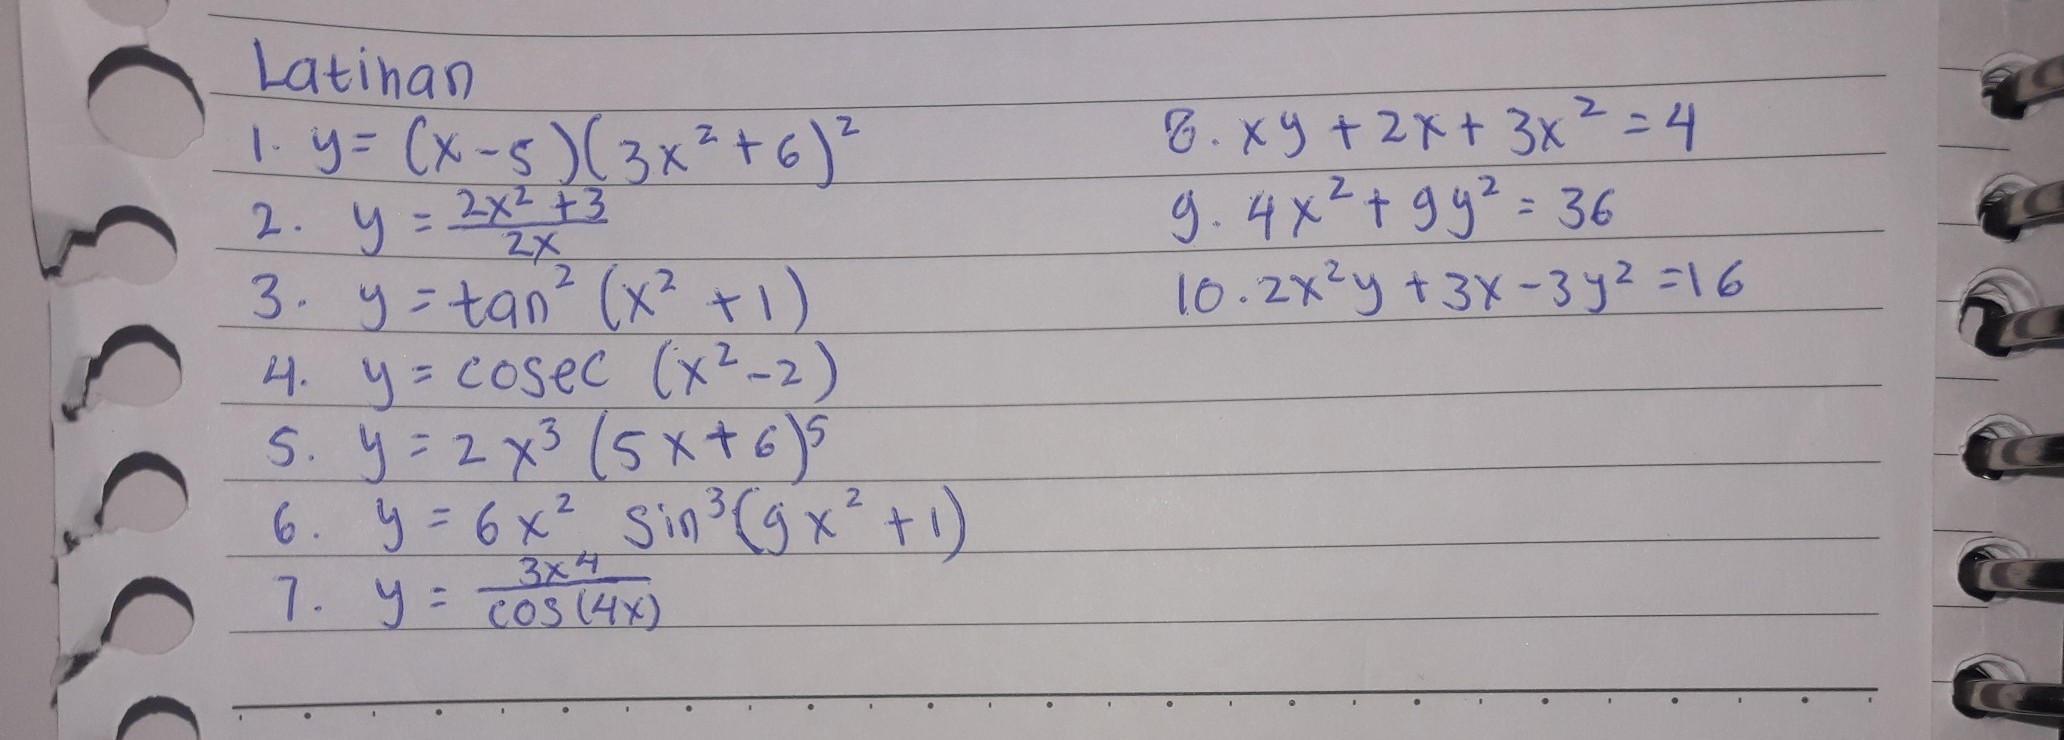 Latihan
1. y = (x-5)(3x²+6)²
2. y = \frac{2x²+3}{2x}
3. y = tan² (x² +1)
4. y = cosec (x²-2)
5. y = 2x³ (5x+6)⁵
6. y = 6x² sin³(9x² +1)
7. y = \frac{3x⁴}{cos(4x)}
8. xy + 2x + 3x² = 4
9. 4x² + 9y² = 36
10. 2x²y + 3x - 3y² = 16